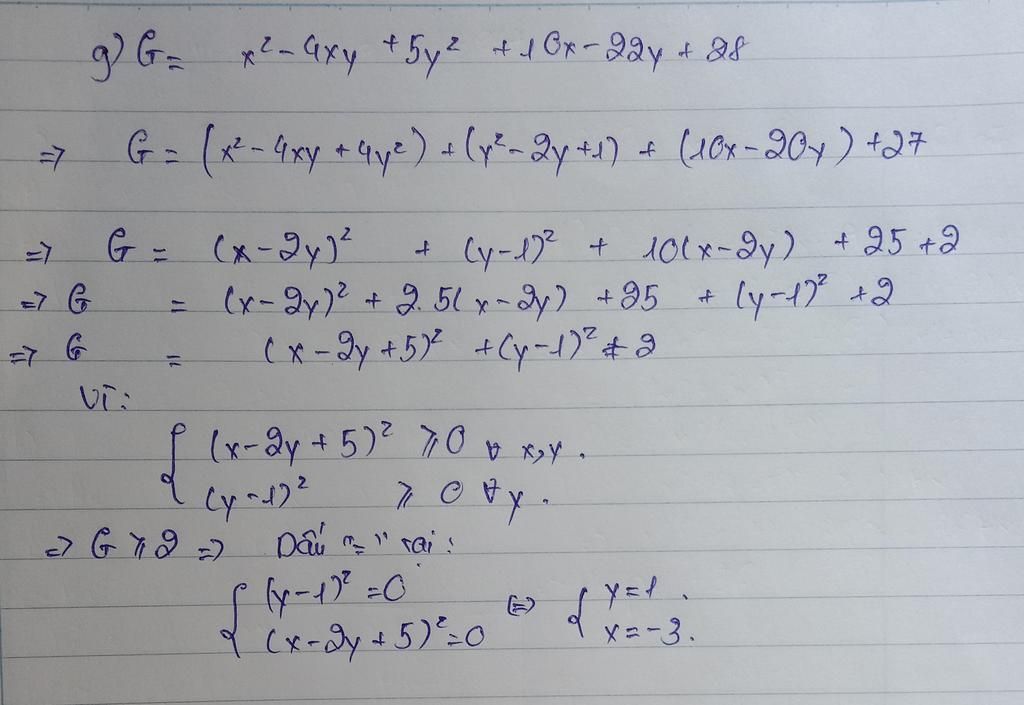 g) G = x² - 4xy + 5y² + 10x - 22y + 28
=> G = (x² - 4xy + 4y²) + (y² - 2y + 1) + (10x - 20y) + 27
=> G = (x - 2y)² + (y - 1)² + 10(x - 2y) + 25 + 2
=> G = (x - 2y)² + 2.5(x - 2y) + 25 + (y - 1)² + 2
=> G = (x - 2y + 5)² + (y - 1)² + 2
Vì:
{ (x - 2y + 5)² ⩾ 0 ∀ x,y.
(y - 1)² ⩾ 0 ∀ y.
=> G ⩾ 2 => Dấu "=" tại:
{ (y - 1)² = 0 <=> { y = 1.
(x - 2y + 5)² = 0 x = -3.